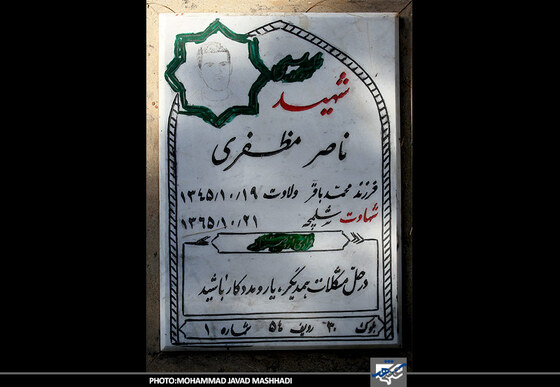 شهید
ناصر مظفری
فرزند محمد باقر ولادت ۱۳۴۵/۱۰/۱۹
شهادت شلمچه ۱۳۶۵/۱۰/۲۱
در حل مشکلات همدیگر، یار و مددکار باشید
بلوک ۳۰ ردیف ۵۴ شماره ۱
PHOTO:MOHAMMAD JAVAD MASHHADI